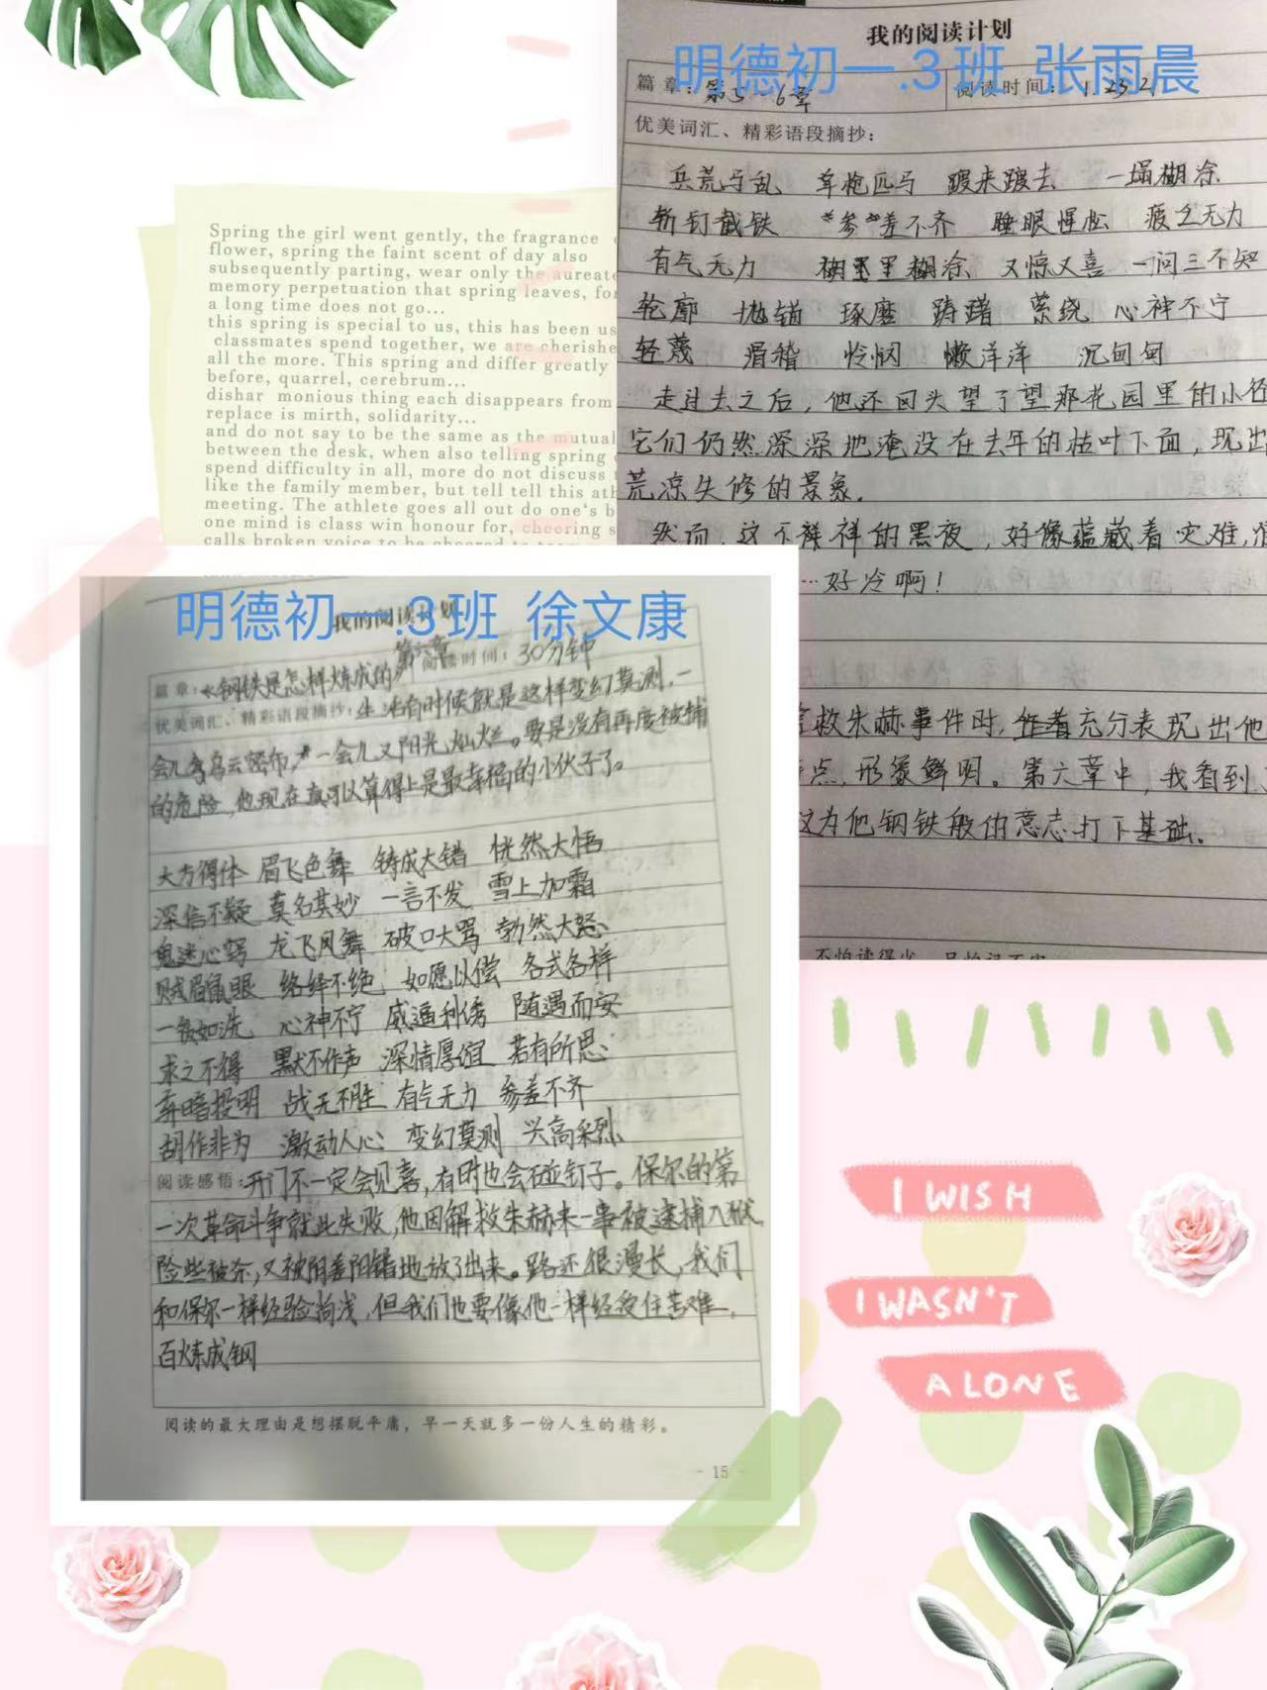 我的阅读计划
明德初一.3班 张雨晨
篇章：第5 6章 阅读时间：1.23.21
优美词汇、精彩语段摘抄：
兵荒马乱 单枪匹马 踱来踱去 一塌糊涂
斩钉截铁 参差不齐 睡眼惺忪 疲乏无力
有气无力 糊里糊涂 又惊又喜 一问三不知
轮廓 抛锚 琢磨 踌躇 萦绕 心神不宁
轻蔑 滑稽 怜悯 懒洋洋 沉甸甸
走过去之后，他还回头望了望那花园里的小径
它们仍然深深地淹没在去年的枯叶下面，现出
荒凉失修的景象。
然而，这不祥的黑夜，好像蕴藏着灾难，
…好冷啊！
救朱赫事件时，充分表现出他
点，形象鲜明。第六章中，我看到
为他钢铁般的意志打下基础。
Spring the girl went gently, the fragrance
flower, spring the faint scent of day also
subsequently parting, wear only the aureate
memory perpetuation that spring leaves, for
a long time does not go...
this spring is special to us, this has been us
classmates spend together, we are cherishe
all the more. This spring and differ greatly
before, quarrel, cerebrum...
dishar monious thing each disappears from
replace is mirth, solidarity...
and do not say to be the same as the mutual
between the desk, when also telling spring
spend difficulty in all, more do not discuss
like the family member, but tell tell this ath
meeting. The athlete goes all out do one's b
one mind is class win honour for, cheering s
calls broken voice to be cheered
我的阅读计划
明德初一.3班 徐文康
篇章：《钢铁是怎样炼成的》第六章 阅读时间：30分钟
优美词汇、精彩语段摘抄：生活有时候就是这样变幻莫测，一
会儿乌云密布，一会儿又阳光灿烂。要是没有再度被捕
的危险，他现在真可以算得上是最幸福的小伙子了。
大方得体 眉飞色舞 铸成大错 恍然大悟
深信不疑 莫名其妙 一言不发 雪上加霜
鬼迷心窍 龙飞凤舞 破口大骂 勃然大怒
贼眉鼠眼 络绎不绝 如愿以偿 各式各样
一贫如洗 心神不宁 威逼利诱 随遇而安
求之不得 默不作声 深情厚谊 若有所思
弃暗投明 战无不胜 有气无力 参差不齐
胡作非为 激动人心 变幻莫测 兴高采烈
阅读感悟：开门不一定会见喜，有时也会碰钉子。保尔的第
一次革命斗争就此失败，他因解救朱赫来一事被逮捕入狱，
险些被杀，又被阴差阳错地放了出来。路还很漫长，我们
和保尔一样经验尚浅，但我们也要像他一样经受住苦难，
百炼成钢
阅读的最大理由是想摆脱平庸，早一天就多一份人生的精彩。
- 15 -
I WISH
I WASN'T
ALONE